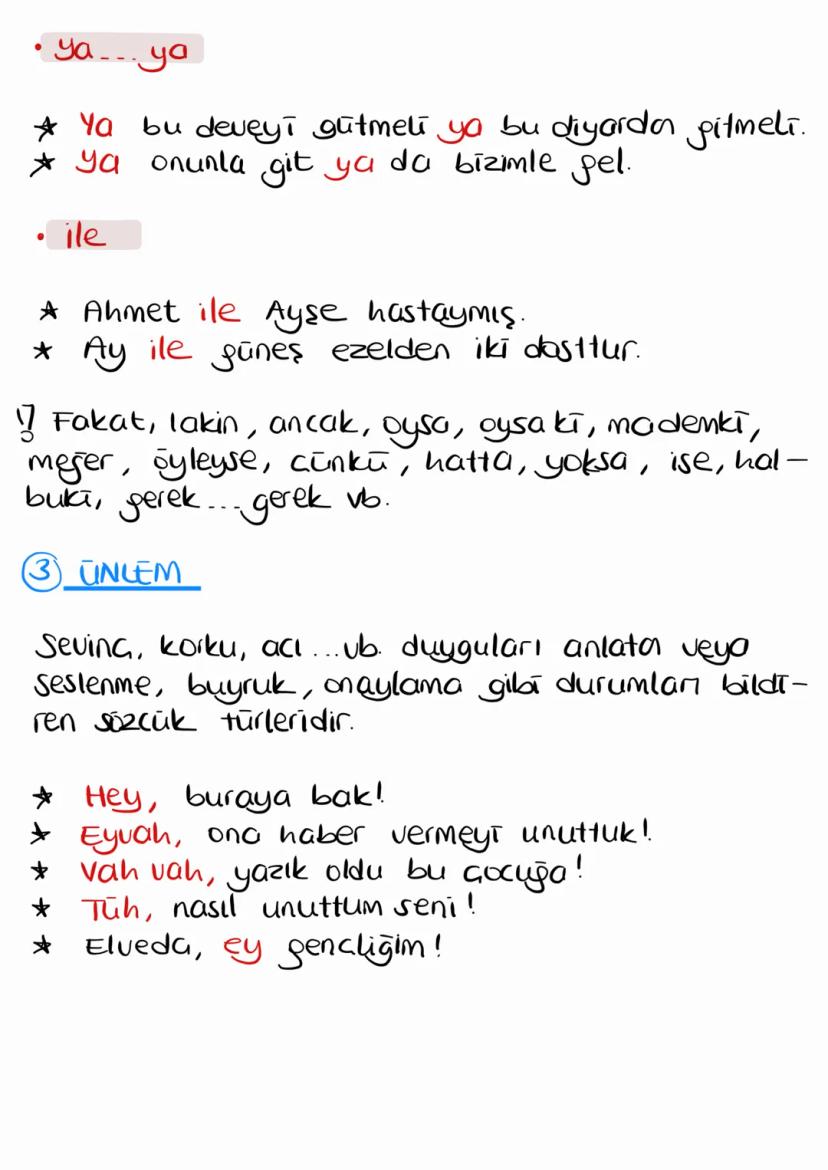 • ya...ya
★ Ya bu deveyi gütmeli ya bu diyardan gitmeli.
★ Ya onunla git ya da bizimle gel.
• ile
★ Ahmet ile Ayşe hastaymış.
★ Ay ile güneş ezelden iki dosttur.
!? Fakat, lakin, ancak, oysa, oysaki, mademki,
meğer, öyleyse, çünkü, hatta, yoksa, ise, hal-
buki, gerek...gerek vb.
3 ÜNLEM
Sevinç, korku, acı...vb. duyguları anlatan veya
seslenme, buyruk, onaylama gibi durumları bildi-
ren sözcük türleridir.
★ Hey, buraya bak!
★ Eyvah, ona haber vermeyi unuttuk!
★ Vah vah, yazık oldu bu çocuğa!
★ Tüh, nasıl unuttum seni!
★ Elveda, ey gençliğim!